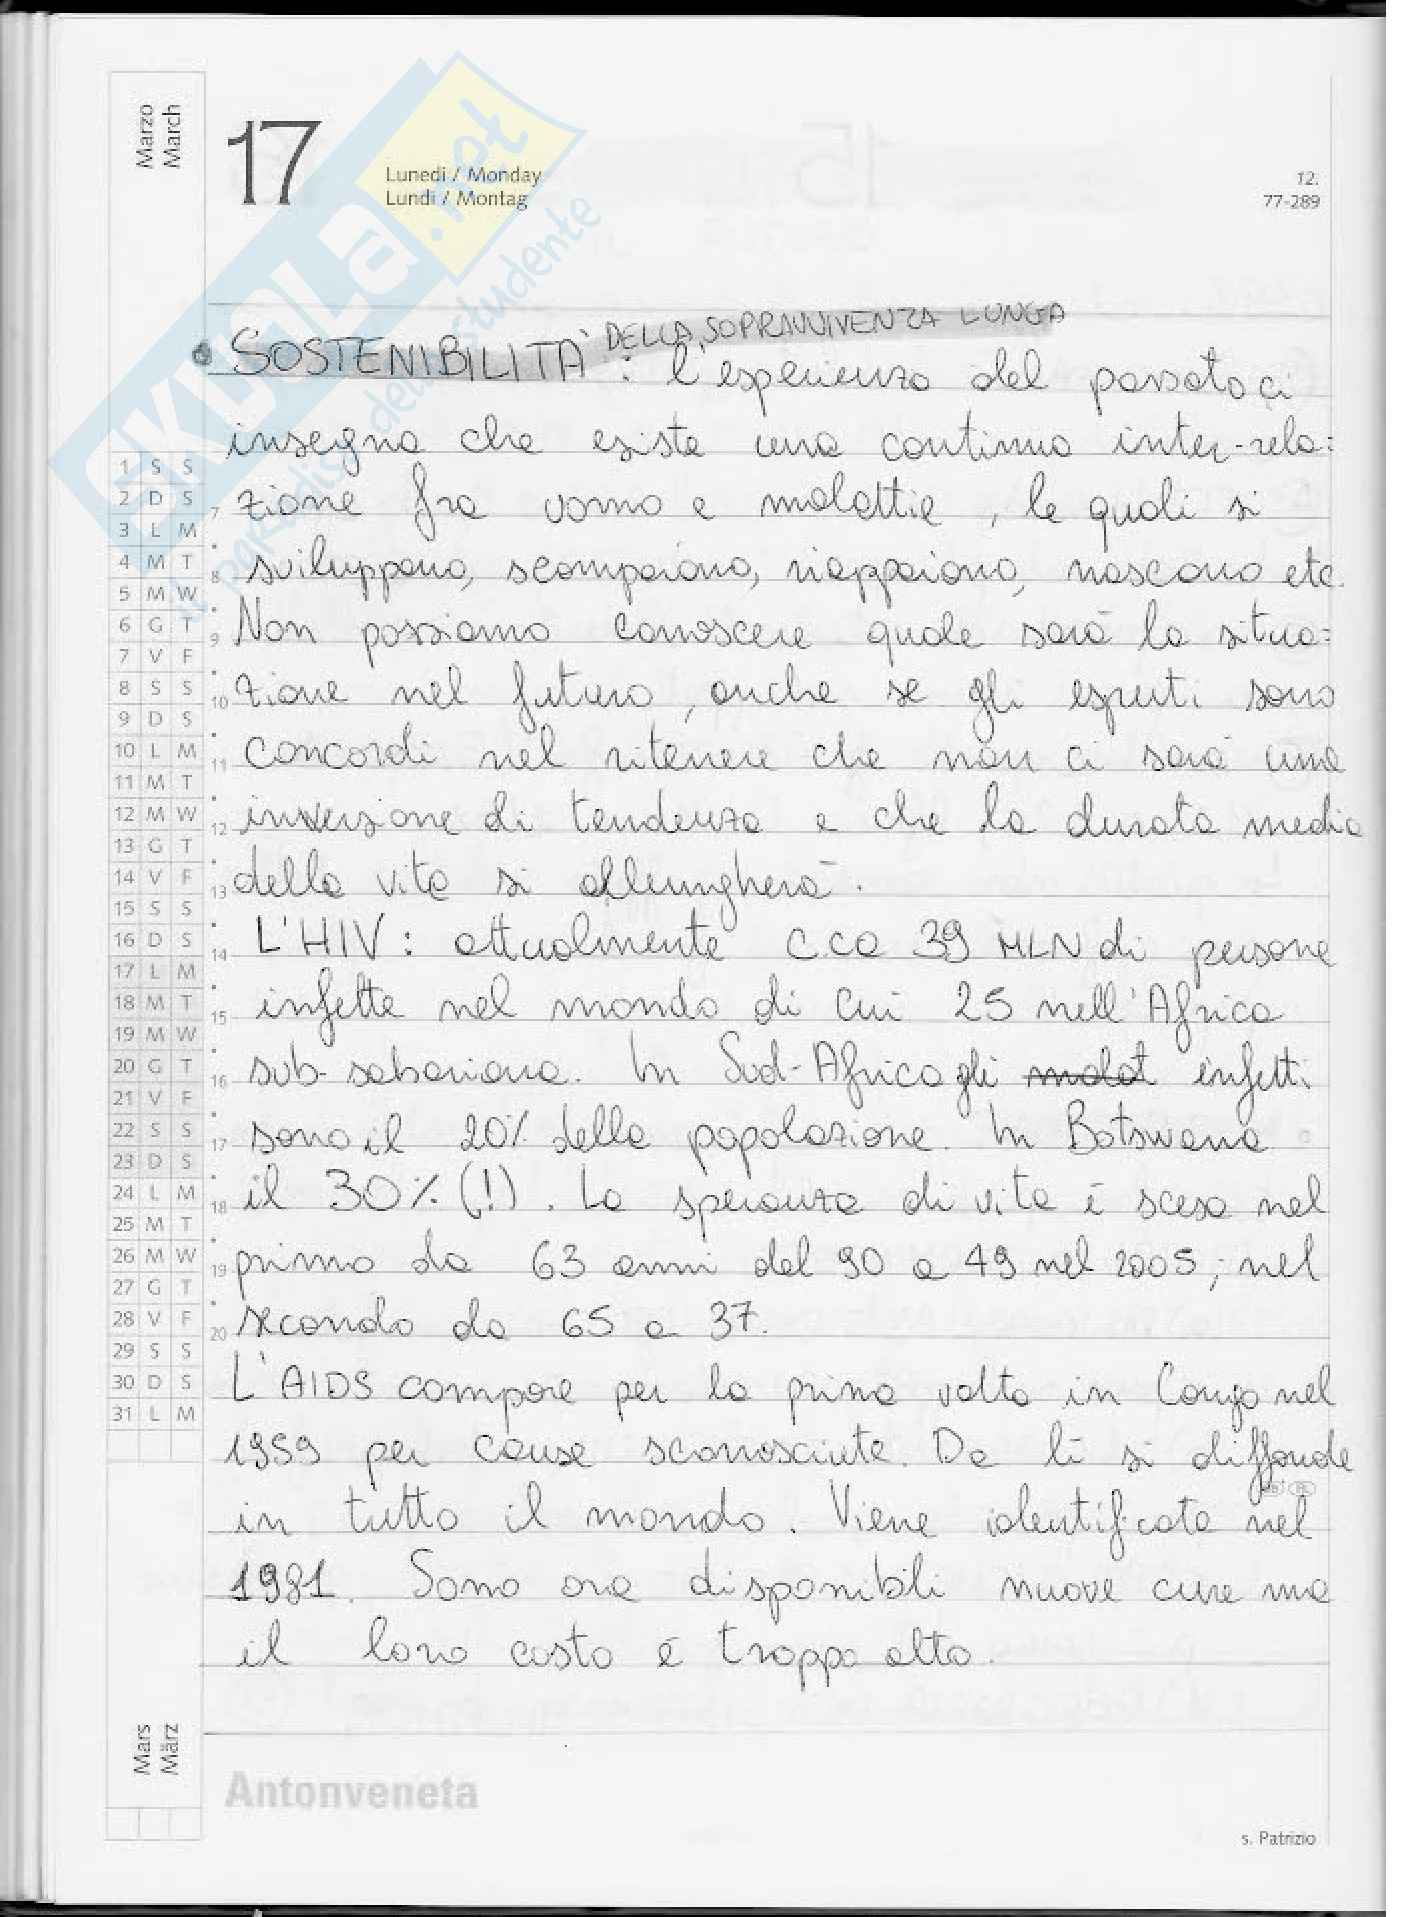 Marzo
March
17
Lunedì / Monday
Lundi / Montag
12.
77-289
SKUOLA.net
il paradiso dello studente
SOSTENIBILITÀ DELLA SOPRAVVIVENZA LUNGA
: l'esperienza del passato ci
insegna che esiste una continua inter-rela=
zione fra uomo e malattie, le quali si
sviluppano, scompaiono, riappaiono, nascono etc.
Non possiamo conoscere quale sarà la situa=
zione nel futuro, anche se gli esperti sono
concordi nel ritenere che non ci sarà una
inversione di tendenza e che la durata media
della vita si allungherà.
L'HIV: attualmente c.ca 39 MLN di persone
infette nel mondo di cui 25 nell'Africa
sub-sahariana. In Sud-Africa gli malat infetti
sono il 20% della popolazione. In Botswana
il 30% (!). La speranza di vita è scesa nel
primo da 63 anni del 90 a 49 nel 2005; nel
secondo da 65 a 37.
L'AIDS compare per la prima volta in Congo nel
1959 per cause sconosciute. Da lì si diffonde
in tutto il mondo. Viene identificata nel
1981. Sono ora disponibili nuove cure ma
il loro costo è troppo alto.
1 S S
2 D S
3 L M
4 M T
5 M W
6 G T
7 V F
8 S S
9 D S
10 L M
11 M T
12 M W
13 G T
14 V F
15 S S
16 D S
17 L M
18 M T
19 M W
20 G T
21 V F
22 S S
23 D S
24 L M
25 M T
26 M W
27 G T
28 V F
29 S S
30 D S
31 L M
7
8
9
10
11
12
13
14
15
16
17
18
19
20
Mars
März
Antonveneta
s. Patrizio